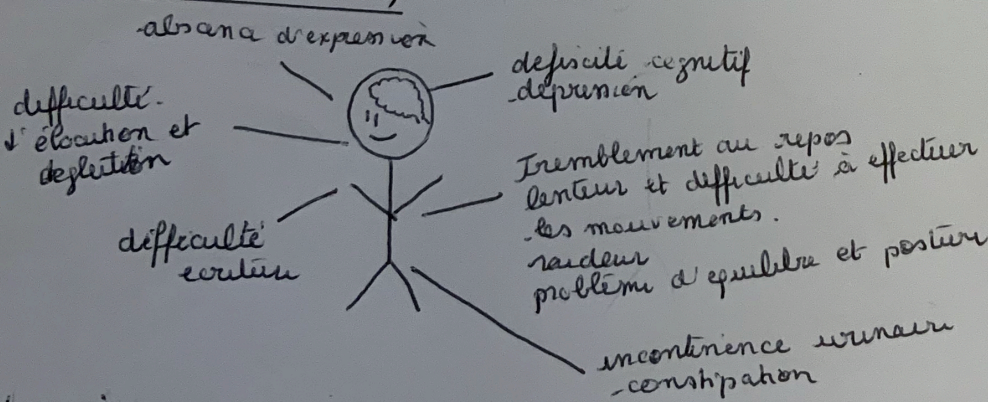 -absence d'expression
deficité cognitif
-depression
difficulté
d'élocution et
deglutition
Tremblement au repos
lenteur et difficulté à effectuer
les mouvements.
raideur
problème d'equilibre et posture
difficulté
ecriture
incontinence urinaire
-constipation